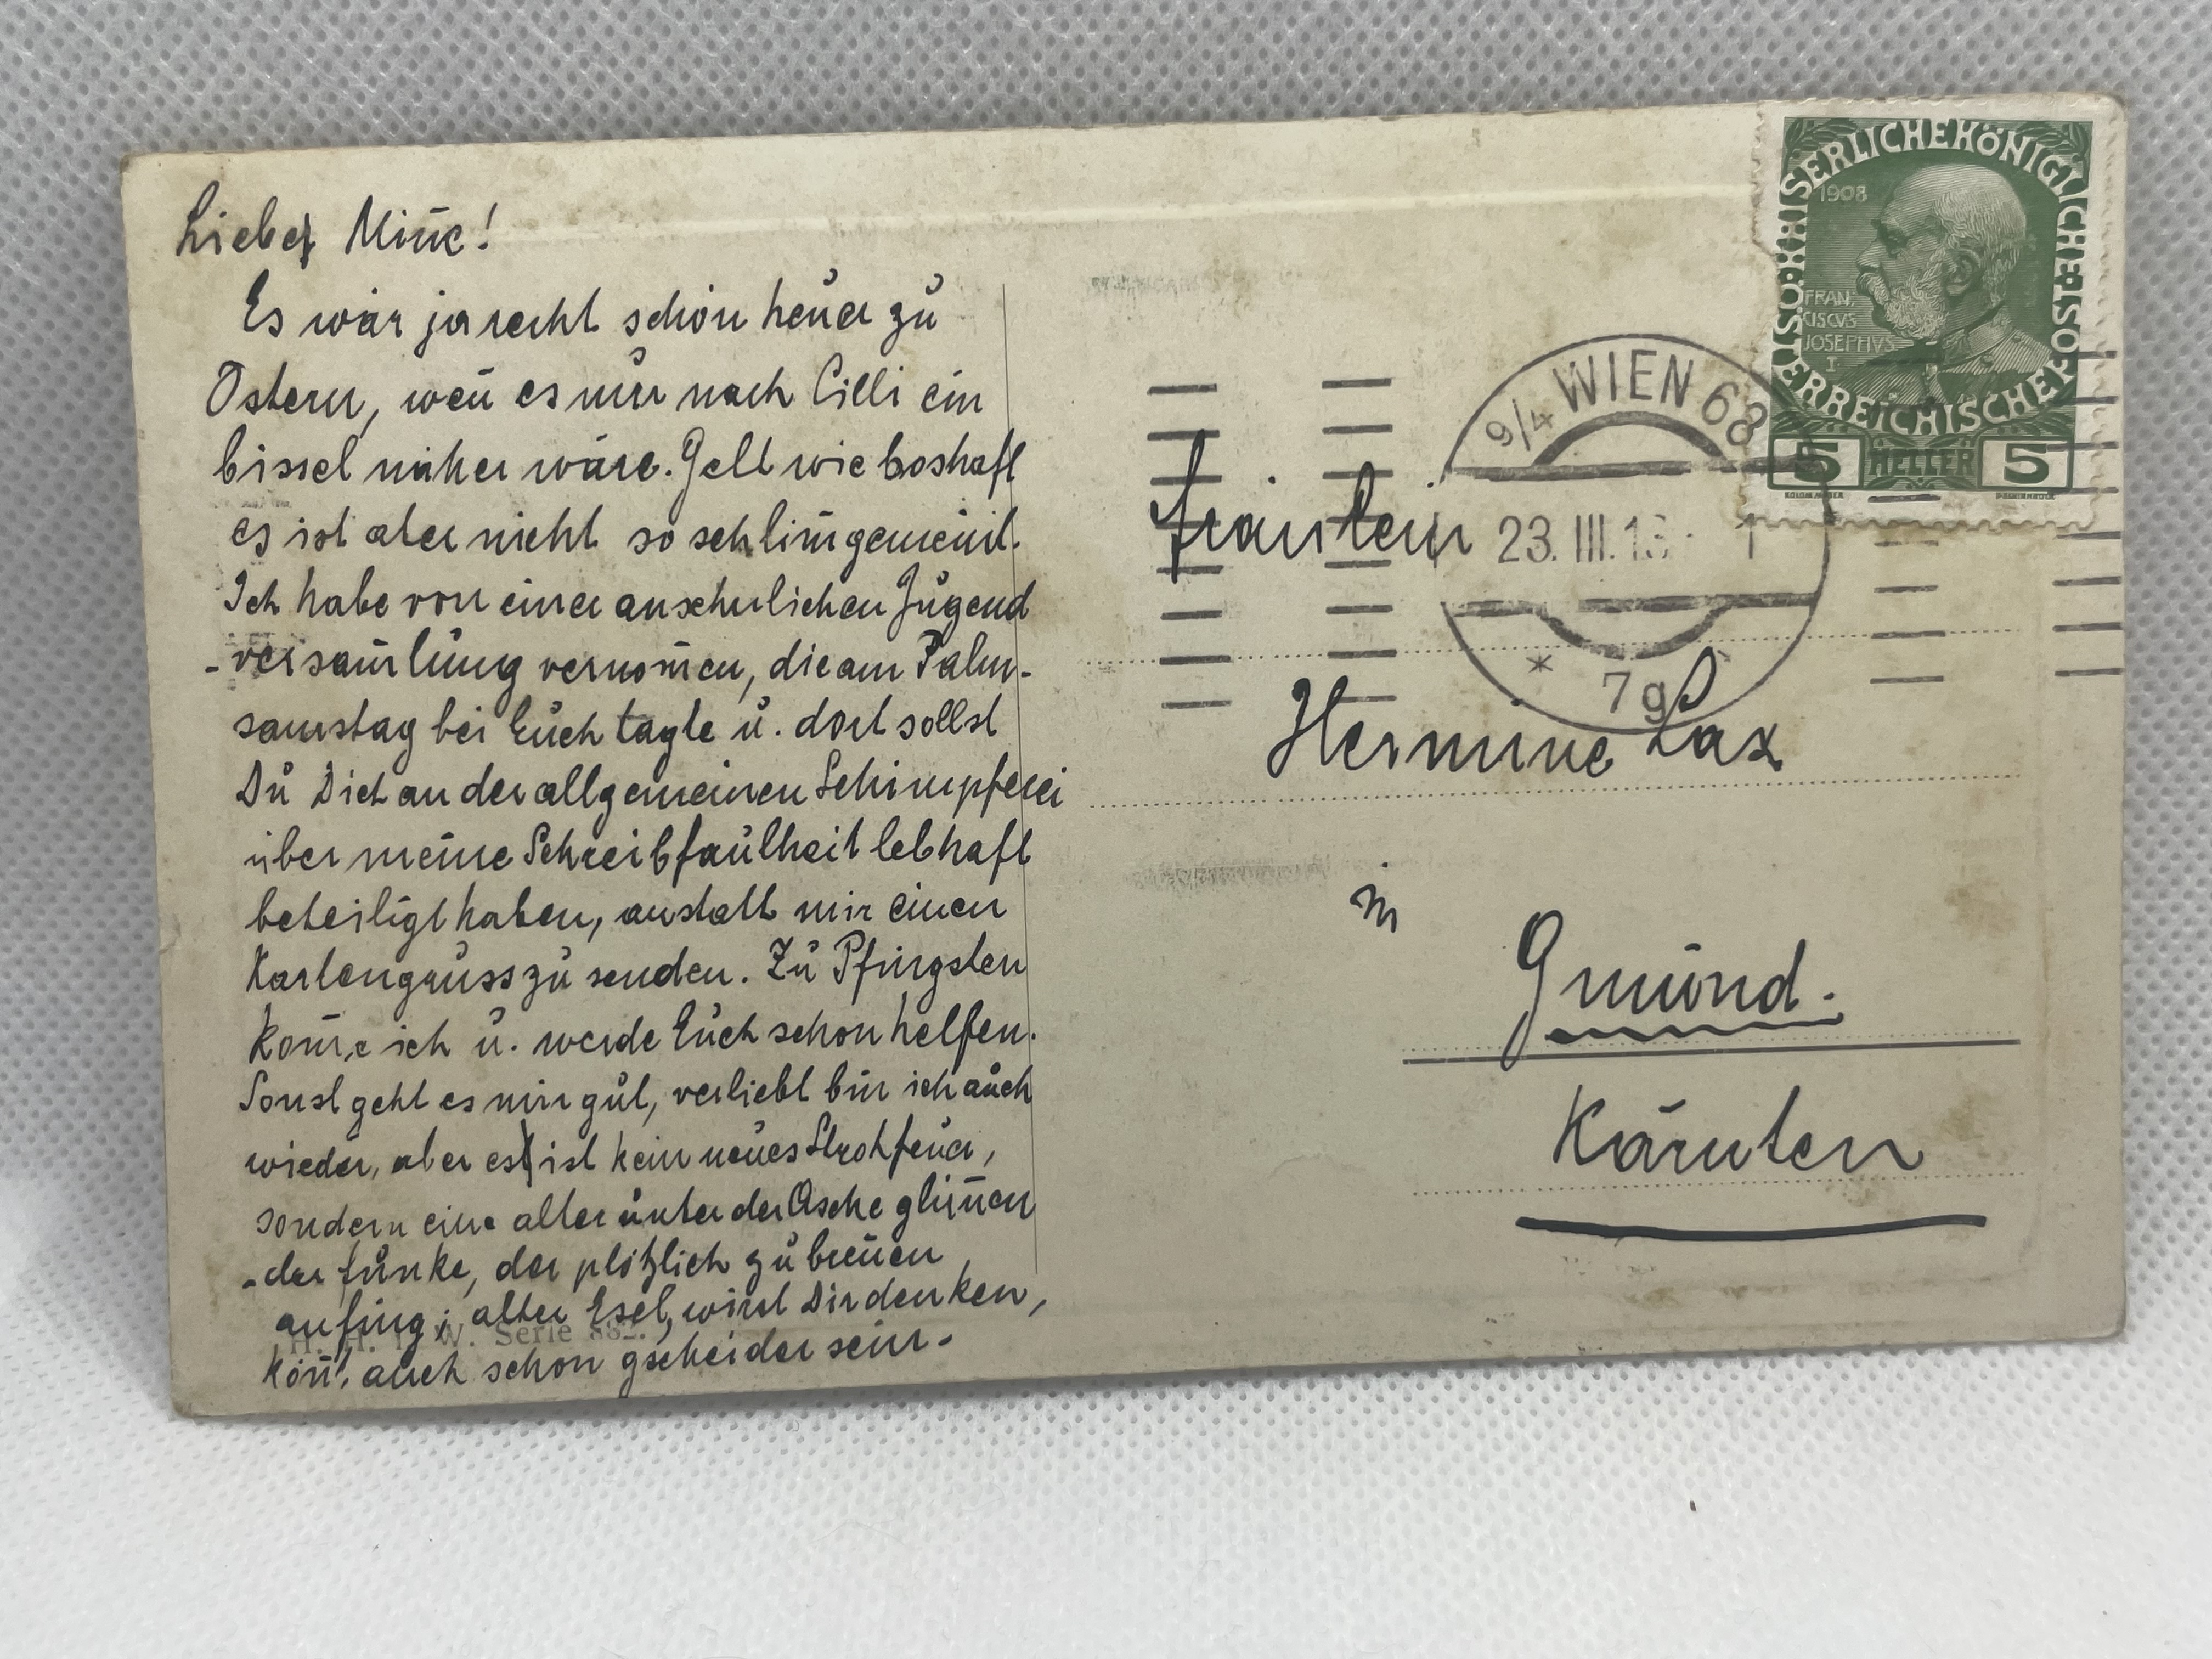 Lieber Miñe!
Es wär ja recht schön heuer zu
Ostern, weñ es nur nach Cilli ein
bissel näher wäre. Gelt wie boshaft
es ist aber nicht so schlim̄ gemeint.
Ich habe von einer ansehnlichen Jugend
-versam̄lung vernom̄en, die am Palm-
samstag bei Euch tagte u. dort sollst
Du Dich an der allgemeinen Schimpferei
über meine Schreibfaulheit lebhaft
beteiligt haben, anstatt mir einen
Kartengruss zu senden. Zu Pfingsten
kom̄e ich u. werde Euch schon helfen.
Sonst geht es mir gut, verliebt bin ich auch
wieder, aber es ist kein neues Strohfeuer,
sondern eine alter unter der Asche glim̄en
-der Funke, der plötzlich zu breñen
anfing; alter Esel, wirst Dir denken,
köñt' auch schon gscheider sein.
H. H. i. W. Serie 882.
KAISERLICHE KÖNIGLICHE ÖSTERREICHISCHE POST
1908
FRAN;
CISCVS
JOSEPHVS
I
5 HELLER 5
KOLOM. MOSER
9/4 WIEN 68
23. III. 13
* 7g
Fräulein
Hermine Lax
in
Gmünd.
Kärnten